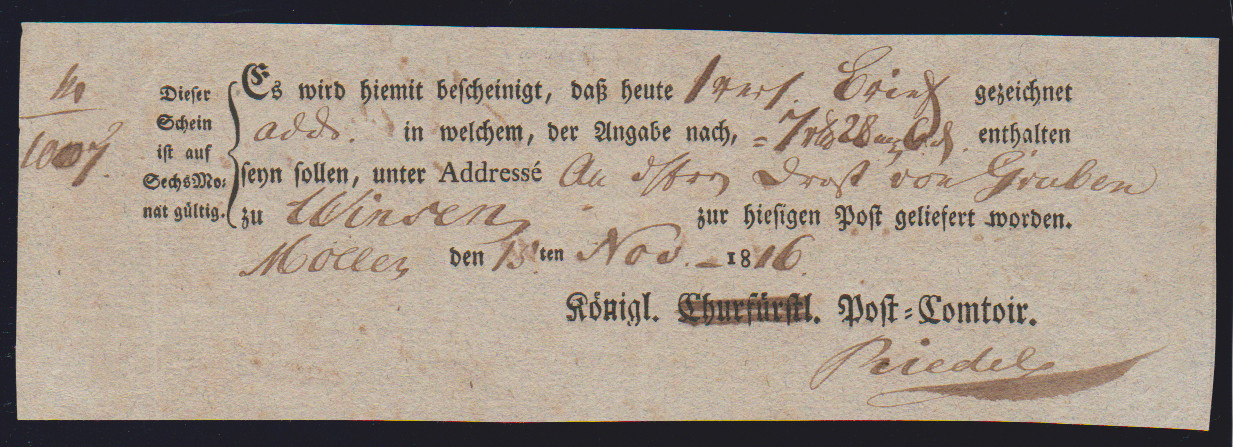 No
1007.
Dieser
Schein
ist auf
SechsMo:
nat gültig.
Es wird hiemit bescheinigt, daß heute 1 vers. Brief gezeichnet
add. in welchem, der Angabe nach, = 7 28 6 enthalten
seyn sollen, unter Addressé An Drost von Gruben
zu Winsen zur hiesigen Post geliefert worden.
Möllen den 13ten Nov. 1816.
Königl. Churfürstl. Post=Comtoir.
Riedel